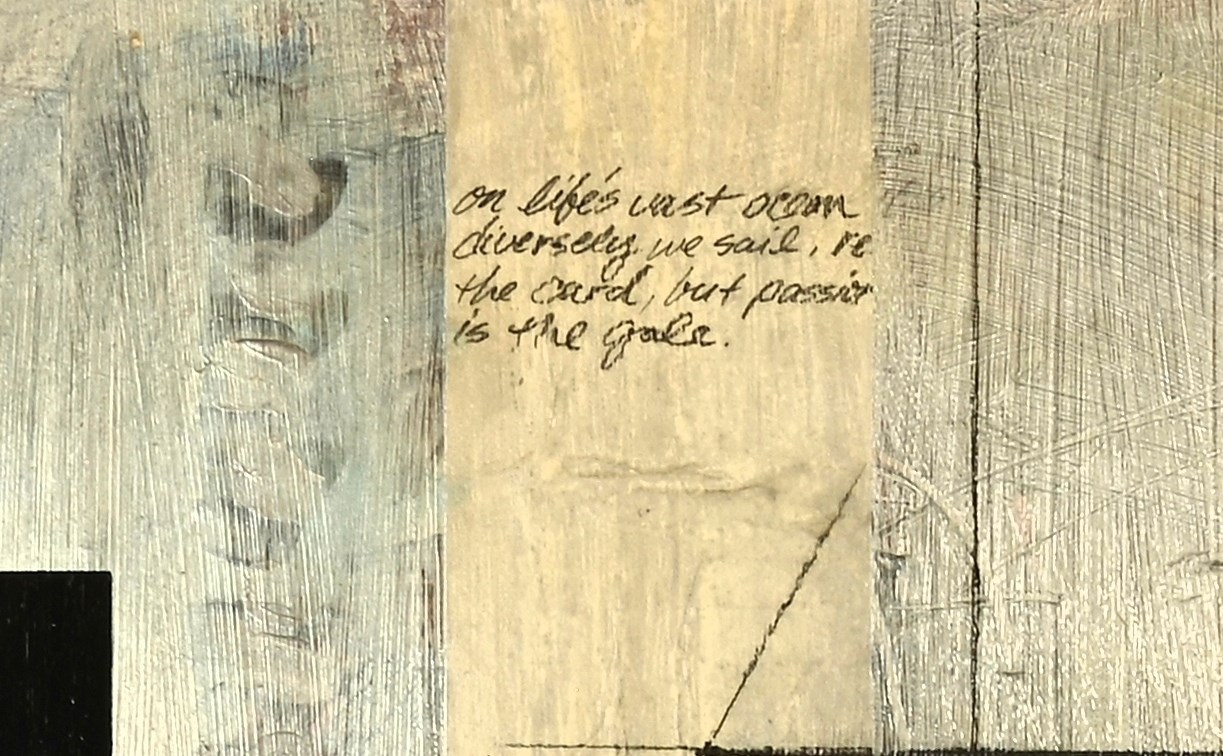 on life's vast ocean
diversely we sail, re
the card, but passion
is the gale.